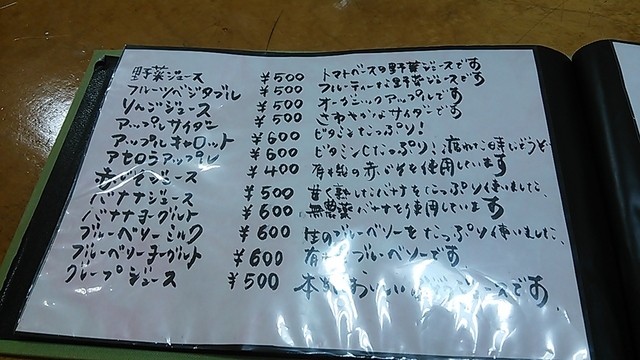 野菜ジュース ¥500 トマトベースの野菜ジュースです
フルーツベジタブル ¥500 フルーティーな野菜ジュースです
りんごジュース ¥500 オーガニックアップルです
アップルサイダー ¥500 さわやかなサイダーです
アップルキャロット ¥600 ビタミンたっぷり!
アセロラアップル ¥600 ビタミンCたっぷり!疲れた時にどうぞ
赤じそジュース ¥400 有機の赤じそを使用しています
バナナジュース ¥500 甘く熟したバナナをたっぷり使いました、
バナナヨーグルト ¥600 無農薬バナナを使用しています
ブルーベリーミルク ¥600 生のブルーベリーをたっぷり使いました、
ブルーベリーヨーグルト ¥600 有機ブルーベリーです
グレープジュース ¥500 ジュースです